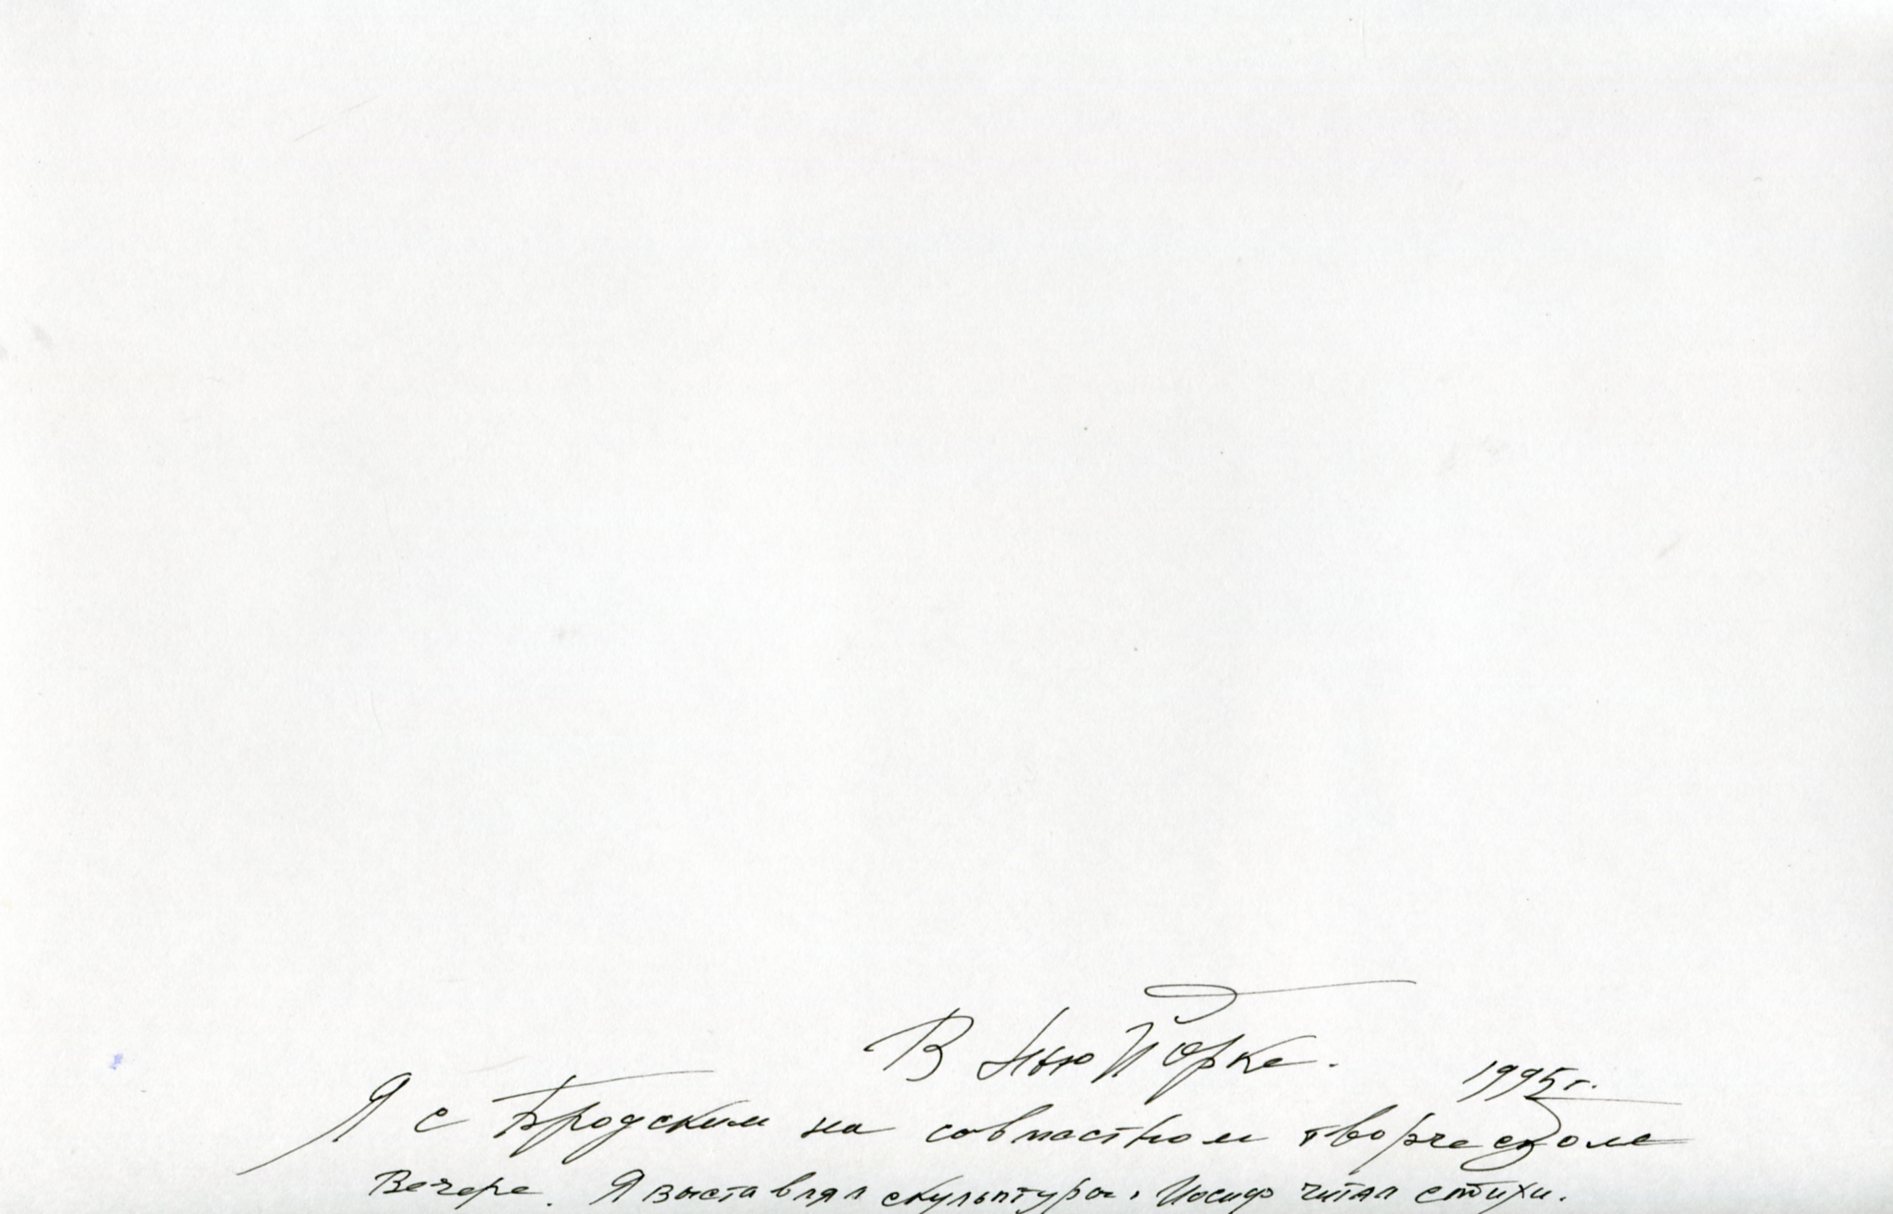 В Нью Йорке.
1995 г.
Я с Бродским на совмастном творческом
Вечере. Я выставлял скульптуры, Иосиф читал стихи.